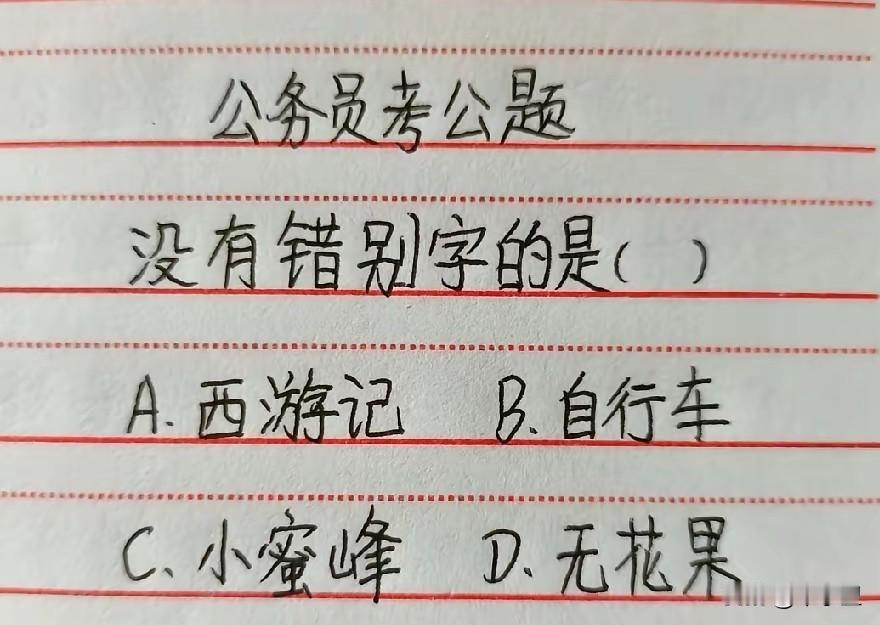 公务员考公题
没有错别字的是( )
A.西游记 B.自行车
C、小蜜峰 D.无花果